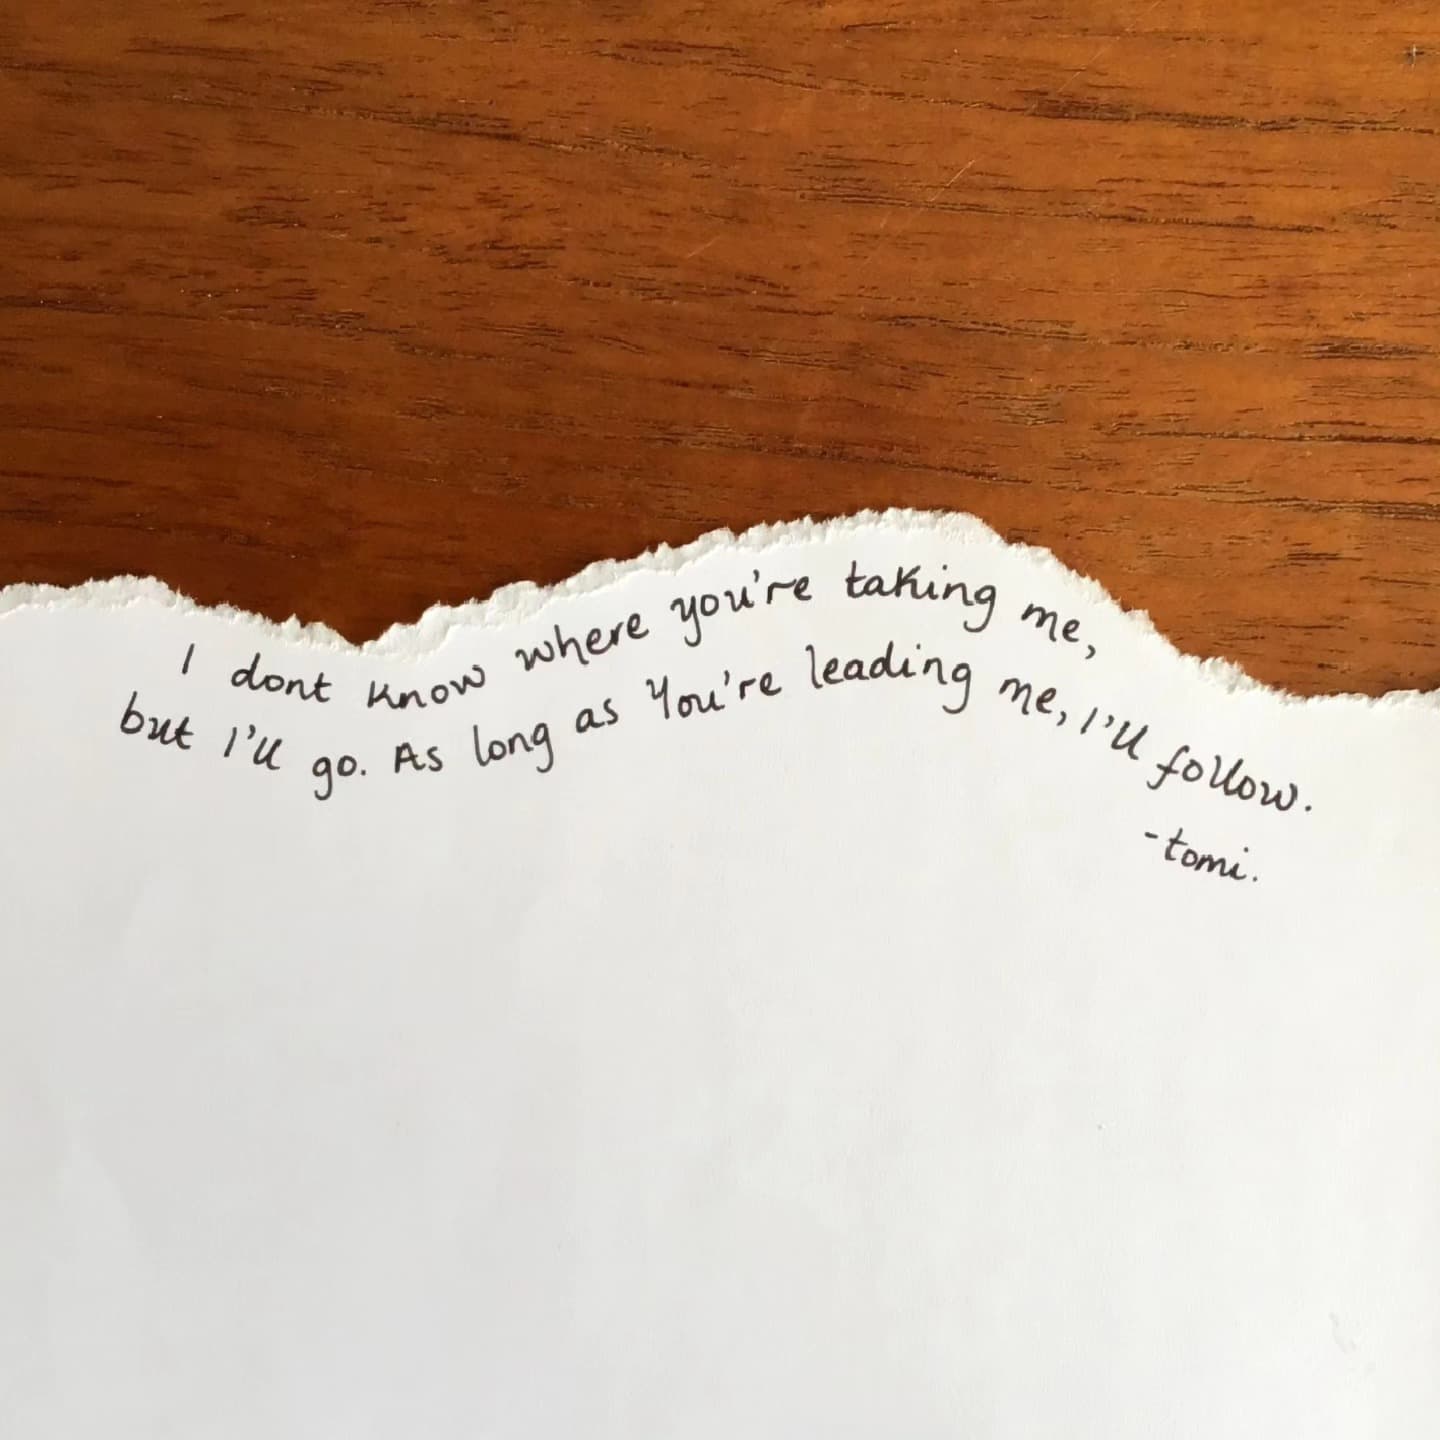 I dont know where you're taking me,
but I'll go. As long as You're leading me, I'll follow.
-tomi.